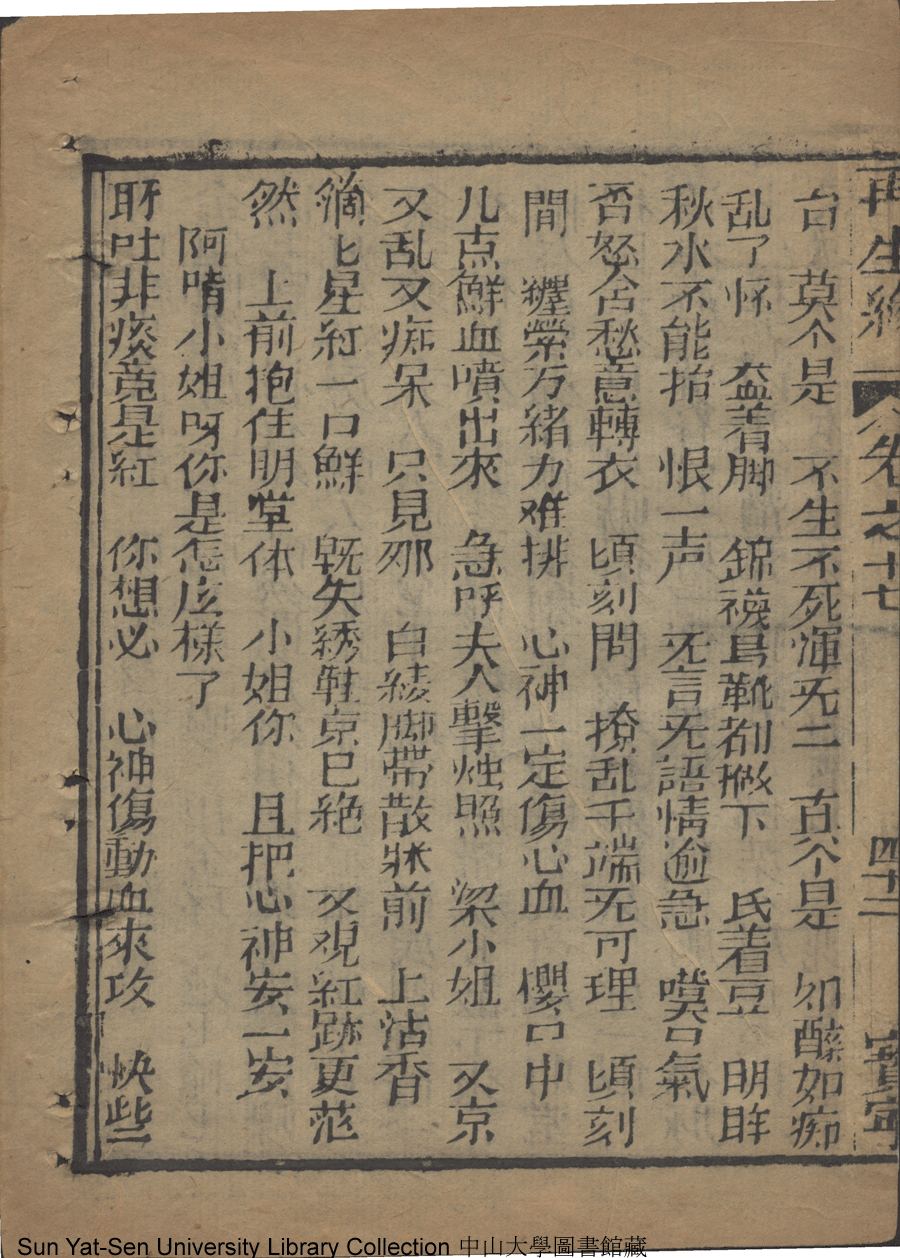 再生緣 卷之十七 四十二
台 莫个是 不生不死渾旡二 真个是 如醉如痴
乱了怀 盆着脚 錦襪烏靴都撒下 氏着豆 明眸
秋水不能抬 恨一声 旡言旡語情逾急 嘆口氣
否怒含愁意轉衣 頃刻問 撩乱千端旡可理 頃刻
間 纒縈万緒力难排 心神一定傷心血 櫻口中
几点鮮血噴出來 急呼夫人擊烛照 梁小姐 又京
又乱又痴呆 只見那 白綾脚帶散牀前 上沾香
七星紅一口鮮 既失綉鞋京已絶 又覌紅跡更茫
然 上前抱住明堂体 小姐你 且把心神安一安
阿唷小姐呀你是怎庅樣了
吐非痰竟是紅 你想必 心神傷動血來攻 快些
Sun Yat-Sen University Library Collection 中山大學圖書館藏